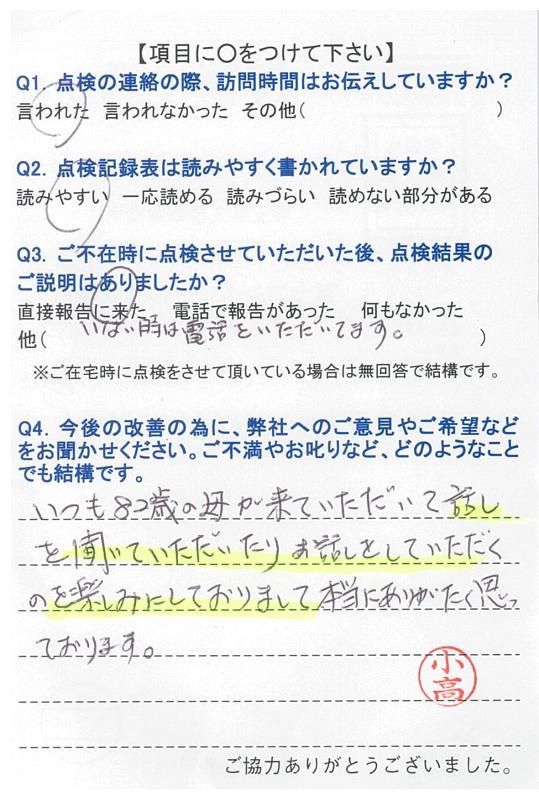 【項目に○をつけて下さい】
Q1. 点検の連絡の際、訪問時間はお伝えしていますか？
言われた 言われなかった その他( )
Q2. 点検記録表は読みやすく書かれていますか？
読みやすい 一応読める 読みづらい 読めない部分がある
Q3. ご不在時に点検させていただいた後、点検結果の
ご説明はありましたか？
直接報告に来た 電話で報告があった 何もなかった
他( いない時は電話をいただいてます。 )
※ご在宅時に点検をさせて頂いている場合は無回答で結構です。
Q4. 今後の改善の為に、弊社へのご意見やご希望など
をお聞かせください。ご不満やお叱りなど、どのようなこと
でも結構です。
いつも82歳の母が来ていただいて話し
を聞いていただいたりお話しをしていただく
のを楽しみにしておりまして本当にありがたく思っ
ております。
小高
ご協力ありがとうございました。